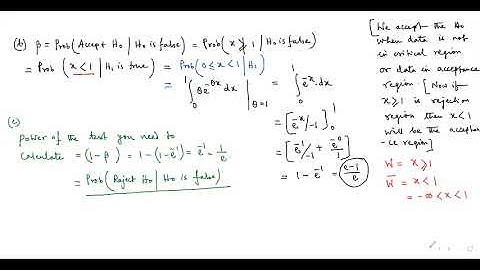 (b) β = Prob(Accept H₀ | H₀ is false) = Prob(x ≱ 1 | H₀ is false)
= Prob (x < 1 | H₁ is true) = Prob(0 ≤ x < 1 | H₁)
= ∫₀¹ θe^{-θx} dx |_{θ=1} = ∫₀¹ e^{-x} dx
= [e^{-x}/-1]₀¹
= [e^{-1}/-1 + e^{0}/1]
= 1 - e^{-1} = e-1/e
(c)
Power of the test you need to
Calculate = (1-β) = 1-(1-e^{-1}) = e^{-1} = 1/e
= Prob(Reject H₀ | H₀ is false)
[We accept the H₀
when data is not
in critical region
or data in acceptance
region. [Now if
x ≥ 1 is rejection
region then x < 1
will be the accepta
-nce region]
W = x ≥ 1
W̄ = x < 1
= -∞ < x < 1